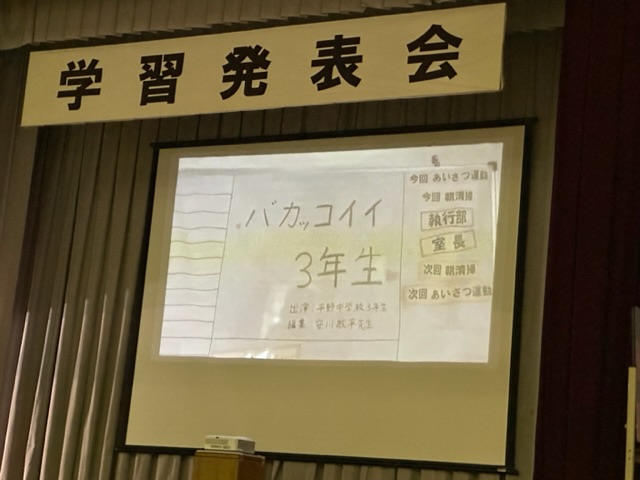 学習発表会
バカッコイイ
3年生
出演:平野中学校3年生
編集:安川教平先生
今回 あいさつ運動
今回 朝清掃
執行部
室長
次回 朝清掃
次回 あいさつ運動